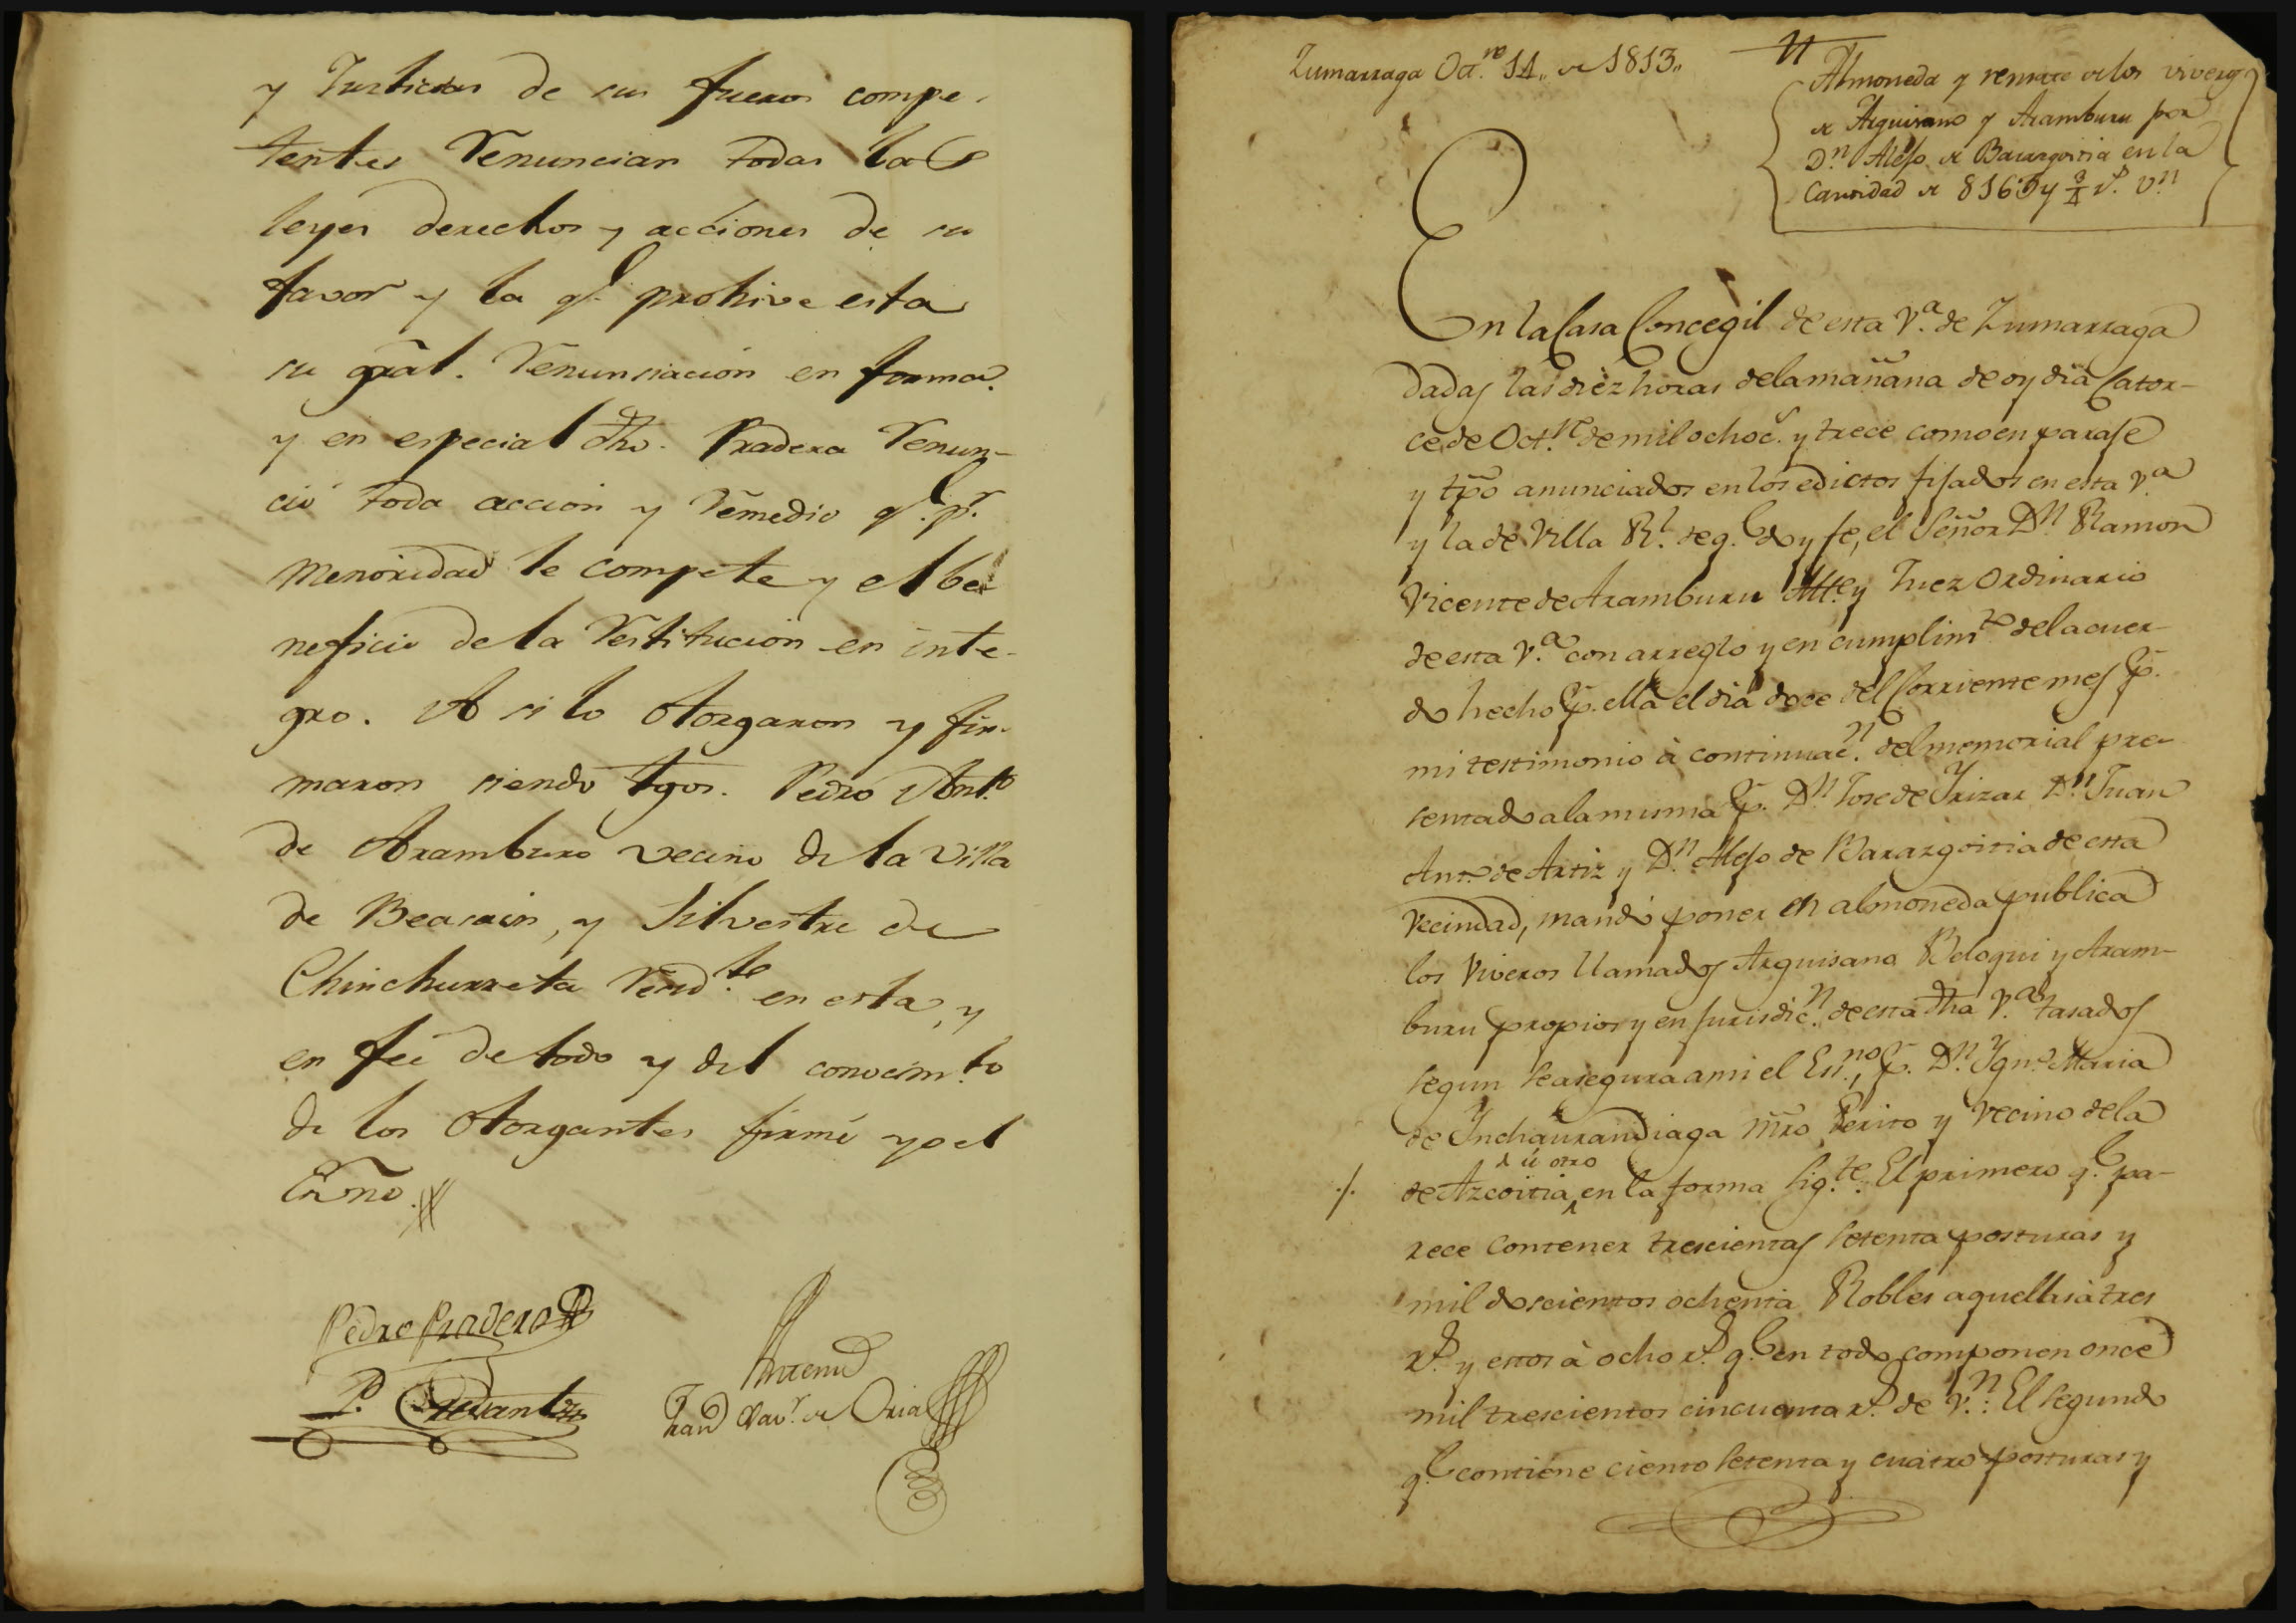 y Justicias de sus fueros compe-
tentes Renuncian todas las
leyes derechos y acciones de su
favor y la q.e prohive esta
su gral. Renunciacion en forma.
y en especial dho. Pradera Renun-
ció toda accion y Remedio q.e p.r
menoridad le compete y el be-
neficio de la Restitucion en inte-
gro. Asi lo otorgaron y fir-
maron siendo tgos. Pedro Ant.o
de Aramburo vecino de la Villa
de Beasain, y Silvestre de
Chinchurreta Resid.te en esta, y
en feé de todo y del conocim.to
de los otorgantes firmé yo el
Esño.
Pedro Pradera
P.
Antemi
Fran.co Xav.r de Oria
Zumarraga Oct.re 14,, de 1813,,
Almoneda y remate de los viveros
de Arguisano y Aramburu por
D.n Alejo de Bararzgoitia en la
Cantidad de 8165 y 3/4 r.s v.n
En la Casa Concegil de esta V.a de Zumarraga
dadas las diez horas dela mañana de oy dia Cator-
ce de Oct.re de mil ochoc.s y trece como en parage
y tpo anunciados en los edictos fijados en esta V.a
y la de Villa R.l de q.e doy fe, el Señor D.n Ramon
Vicente de Aramburu Alt.e y Juez Ordinario
de esta V.a con arreglo y en cumplim.to del acuer-
do hecho p.r ella el dia doce del Corriente mes p.r
mi testimonio à continuac.n del memorial pre-
sentado a la misma p.r D.n Jose de Yrizar D.n Juan
Ant.o de Artiz y D.n Alejo de Bararzgoitia de esta
Vecindad, mandó poner en almoneda publica
los Viveros llamados Arguisano Beloqui y Aram-
buru propios y en jurisdic.n de esta dha V.a tasados
segun se asegura a mi el Es.no, p.r D.n Ygn.o Maria
de Ynchaurandiaga mro Perito y Vecino de la
./. de Azcoitia en la forma sig.te: El primero q.e pa-
rece contener trescientas setenta posturas y
mil doscientos ochenta Robles aquellas à tres
r.s y estos à ocho r.s q.e en todo componen once
mil trescientos cincuenta r.s de v.n: El segundo
q.e contiene ciento setenta y cuatro posturas y